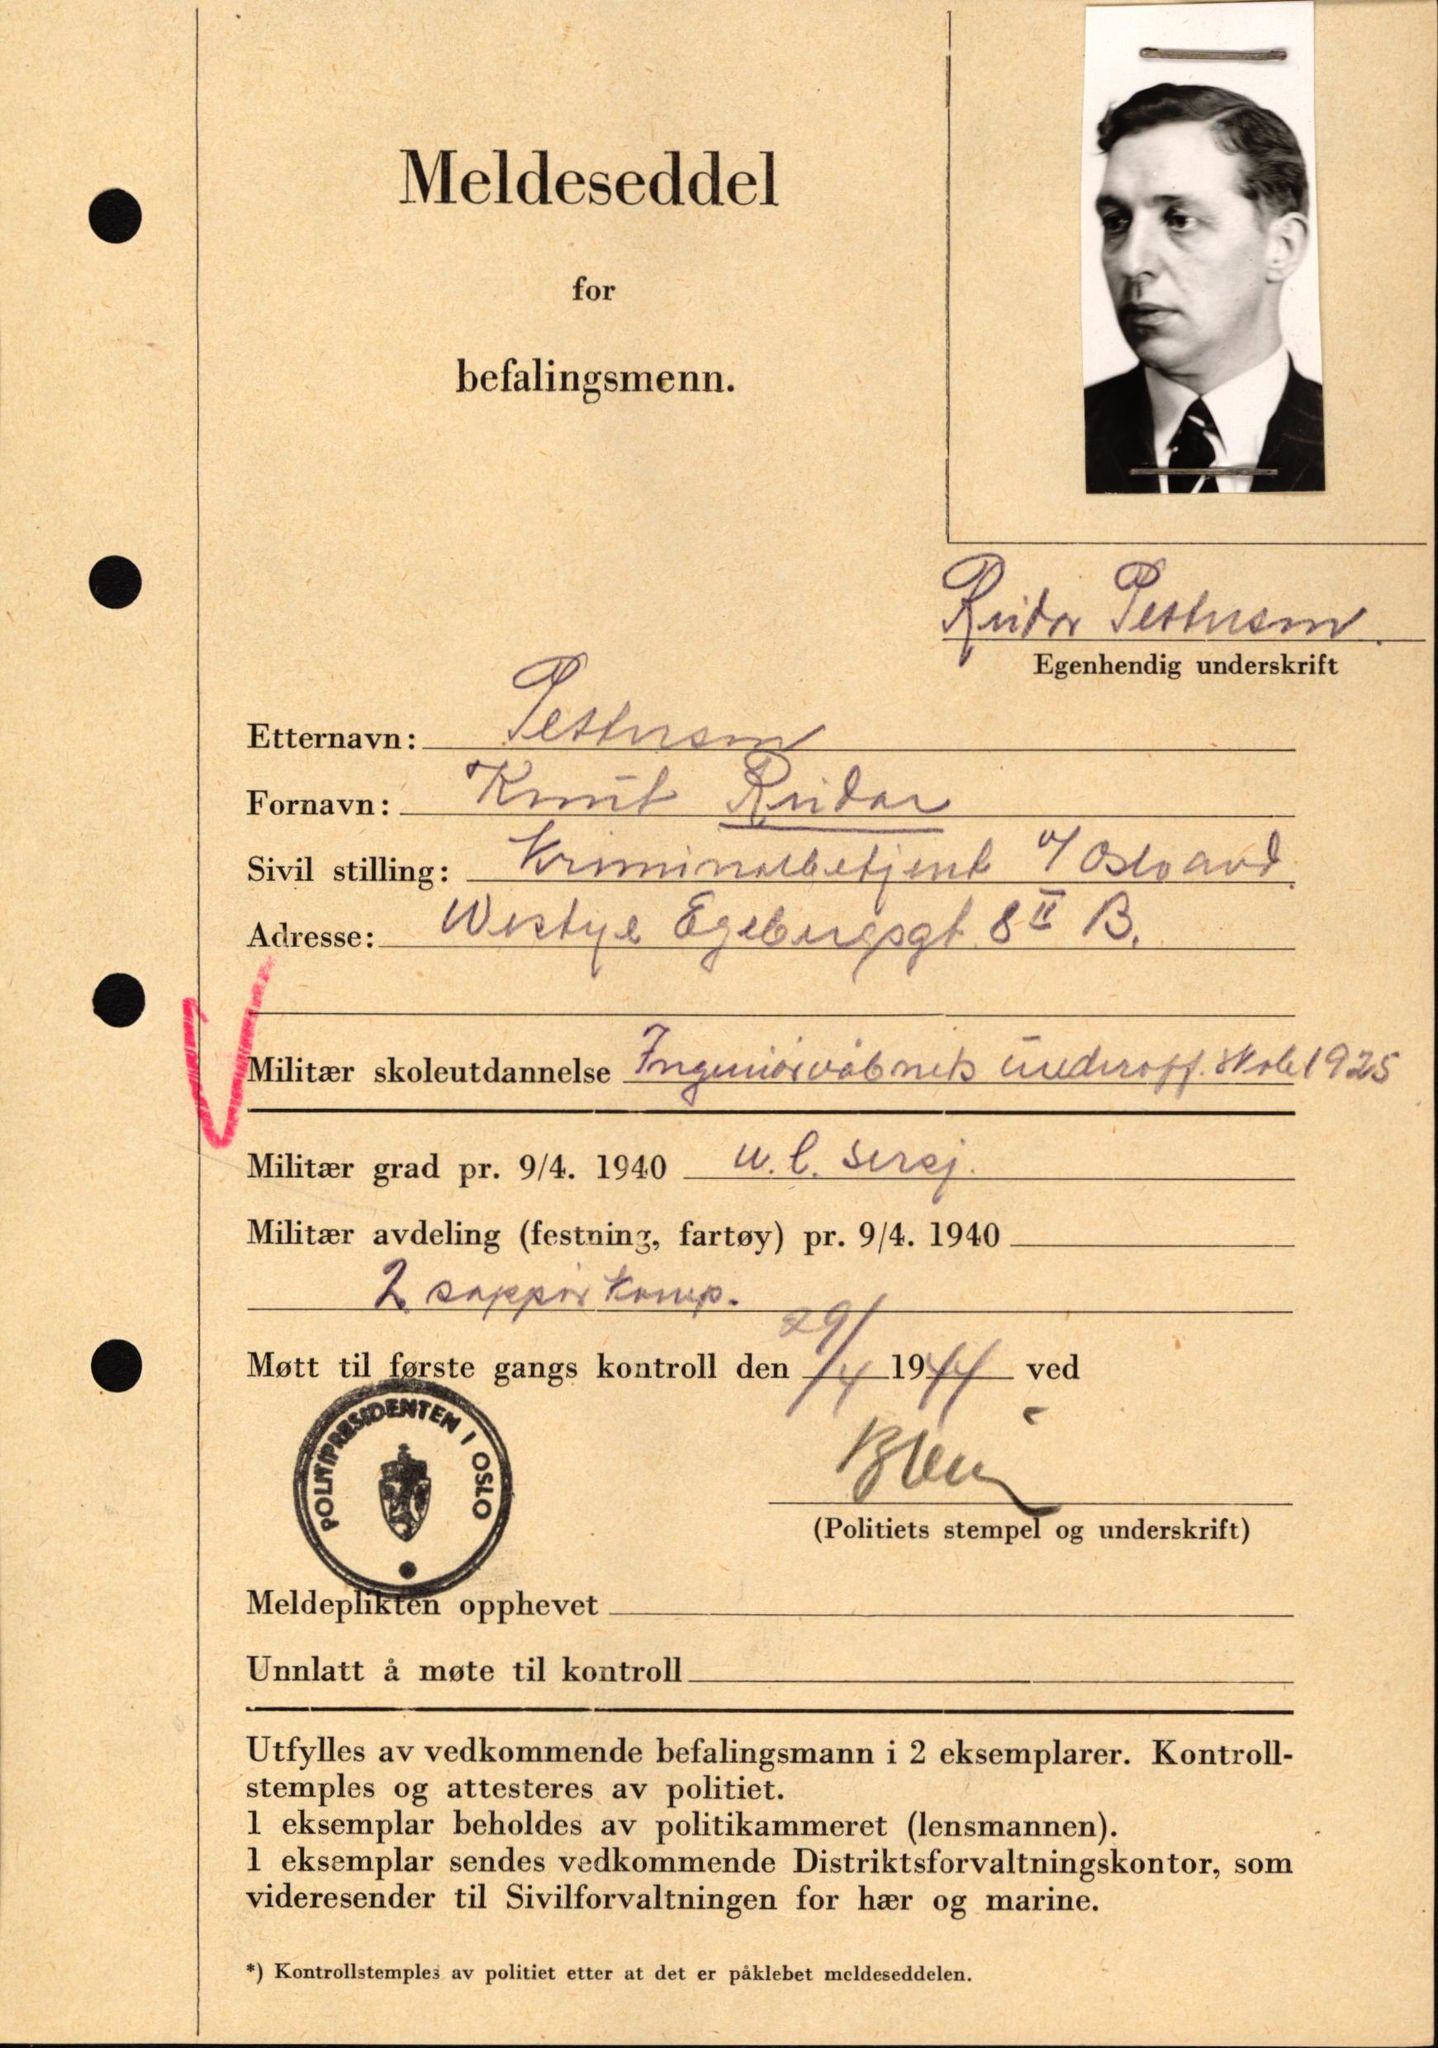 Meldeseddel
for
befalingsmenn.
Reidar Pettersen
Egenhendig underskrift
Etternavn: Pettersen
Fornavn: Knut Reidar
Sivil stilling: Kriminalbetjent v/ Oslo avd.
Adresse: Westye Egebergsgt 8 II B.
Militær skoleutdannelse Ingeniørvåbnets underoff. skole 1925
Militær grad pr. 9/4. 1940 u. l. sersj.
Militær avdeling (festning, fartøy) pr. 9/4. 1940
2 sappør komp.
Møtt til første gangs kontroll den 29/4 1944 ved
POLITIPRESIDENTEN I OSLO
(Politiets stempel og underskrift)
Meldeplikten opphevet
Unnlatt å møte til kontroll
Utfylles av vedkommende befalingsmann i 2 eksemplarer. Kontroll-
stemples og attesteres av politiet.
1 eksemplar beholdes av politikammeret (lensmannen).
1 eksemplar sendes vedkommende Distriktsforvaltningskontor, som
videresender til Sivilforvaltningen for hær og marine.
*) Kontrollstemples av politiet etter at det er påklebet meldeseddelen.